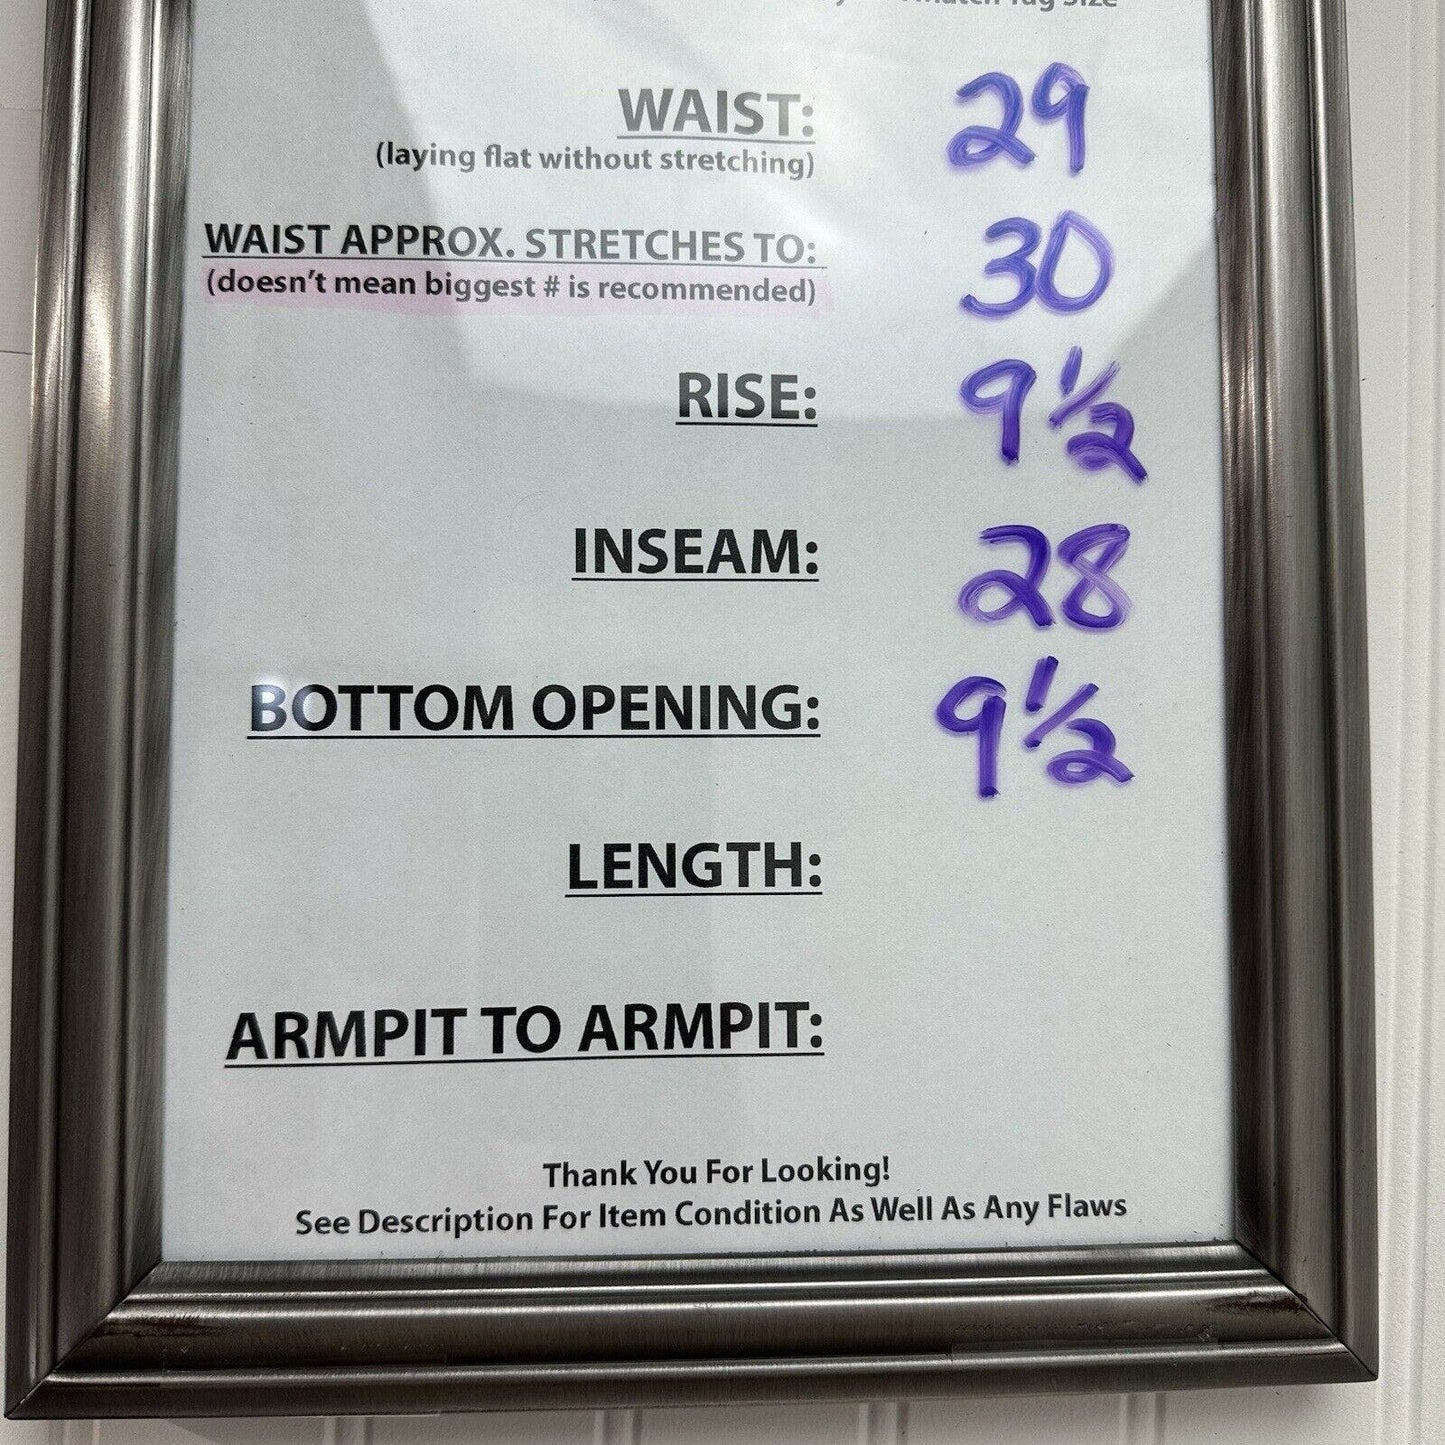 Match Tag Size
WAIST: 29
(laying flat without stretching)
WAIST APPROX. STRETCHES TO: 30
(doesn't mean biggest # is recommended)
RISE: 9 1/2
INSEAM: 28
BOTTOM OPENING: 9 1/2
LENGTH:
ARMPIT TO ARMPIT:
Thank You For Looking!
See Description For Item Condition As Well As Any Flaws